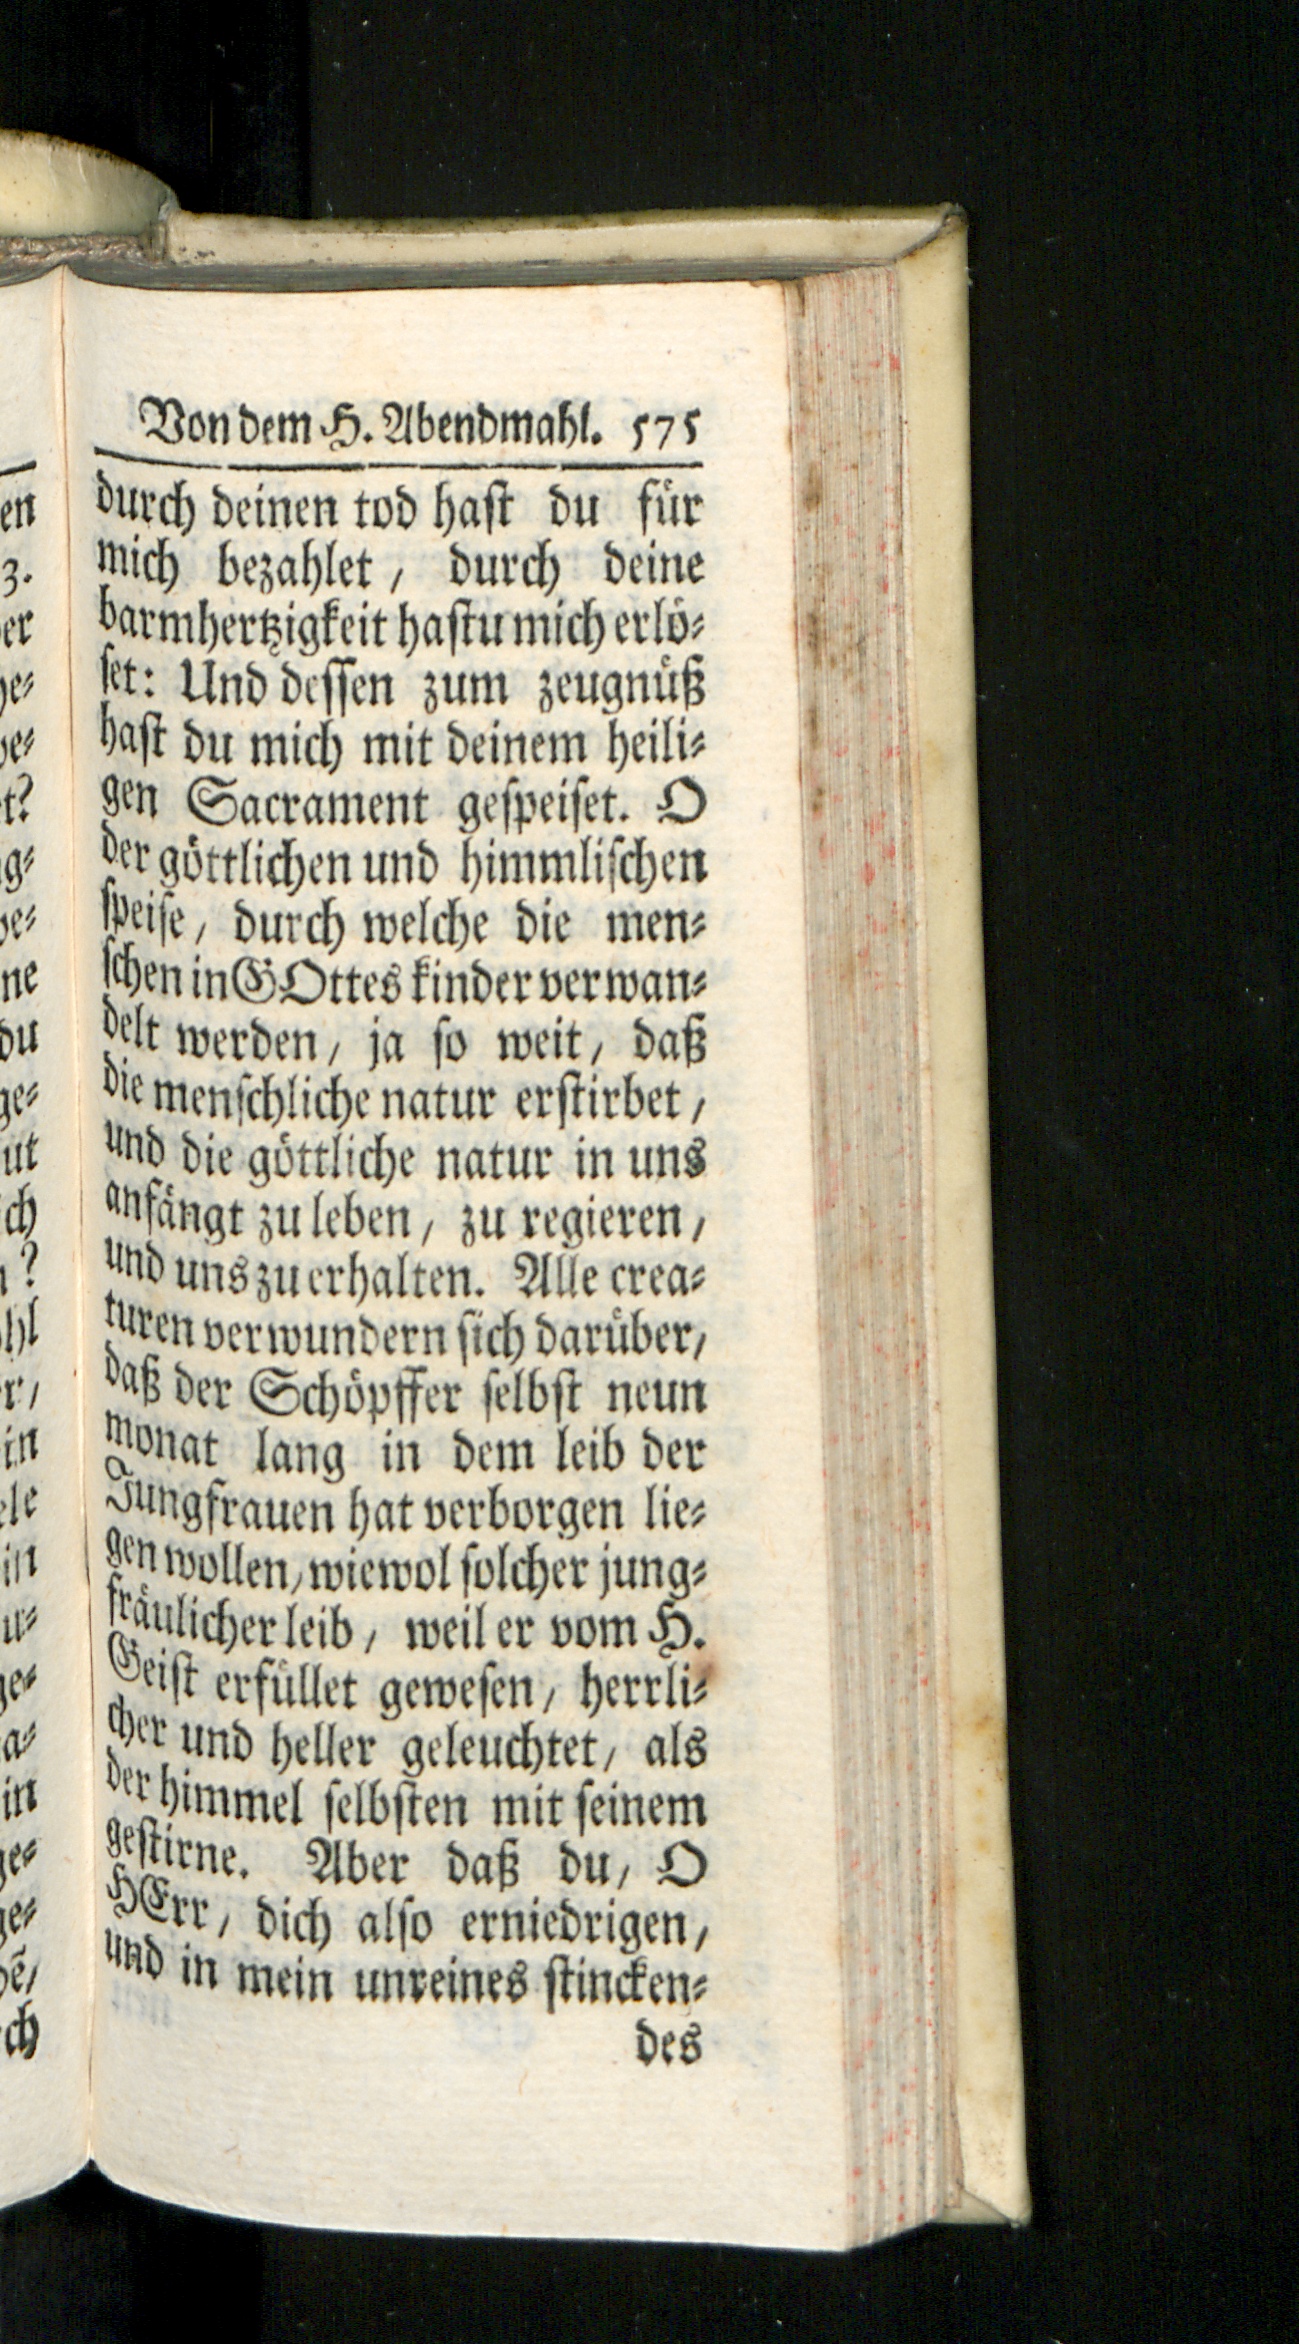 Von dem H. Abendmahl. 575
durch deinen tod hast du für
mich bezahlet / durch deine
barmhertzigkeit hastu mich erlö-
set: Und dessen zum zeugnüß
hast du mich mit deinem heili-
gen Sacrament gespeiset. O
der göttlichen und himmlischen
speise / durch welche die men-
schen in GOttes kinder verwan-
delt werden / ja so weit / daß
die menschliche natur erstirbet /
und die göttliche natur in uns
anfängt zu leben / zu regieren /
und uns zu erhalten. Alle crea-
turen verwundern sich darüber /
daß der Schöpffer selbst neun
monat lang in dem leib der
Jungfrauen hat verborgen lie-
gen wollen / wiewol solcher jung-
fräulicher leib / weil er vom H.
Geist erfüllet gewesen / herrli-
cher und heller geleuchtet / als
der himmel selbsten mit seinem
gestirne. Aber daß du / O
HErr / dich also erniedrigen /
und in mein unreines stincken-
des